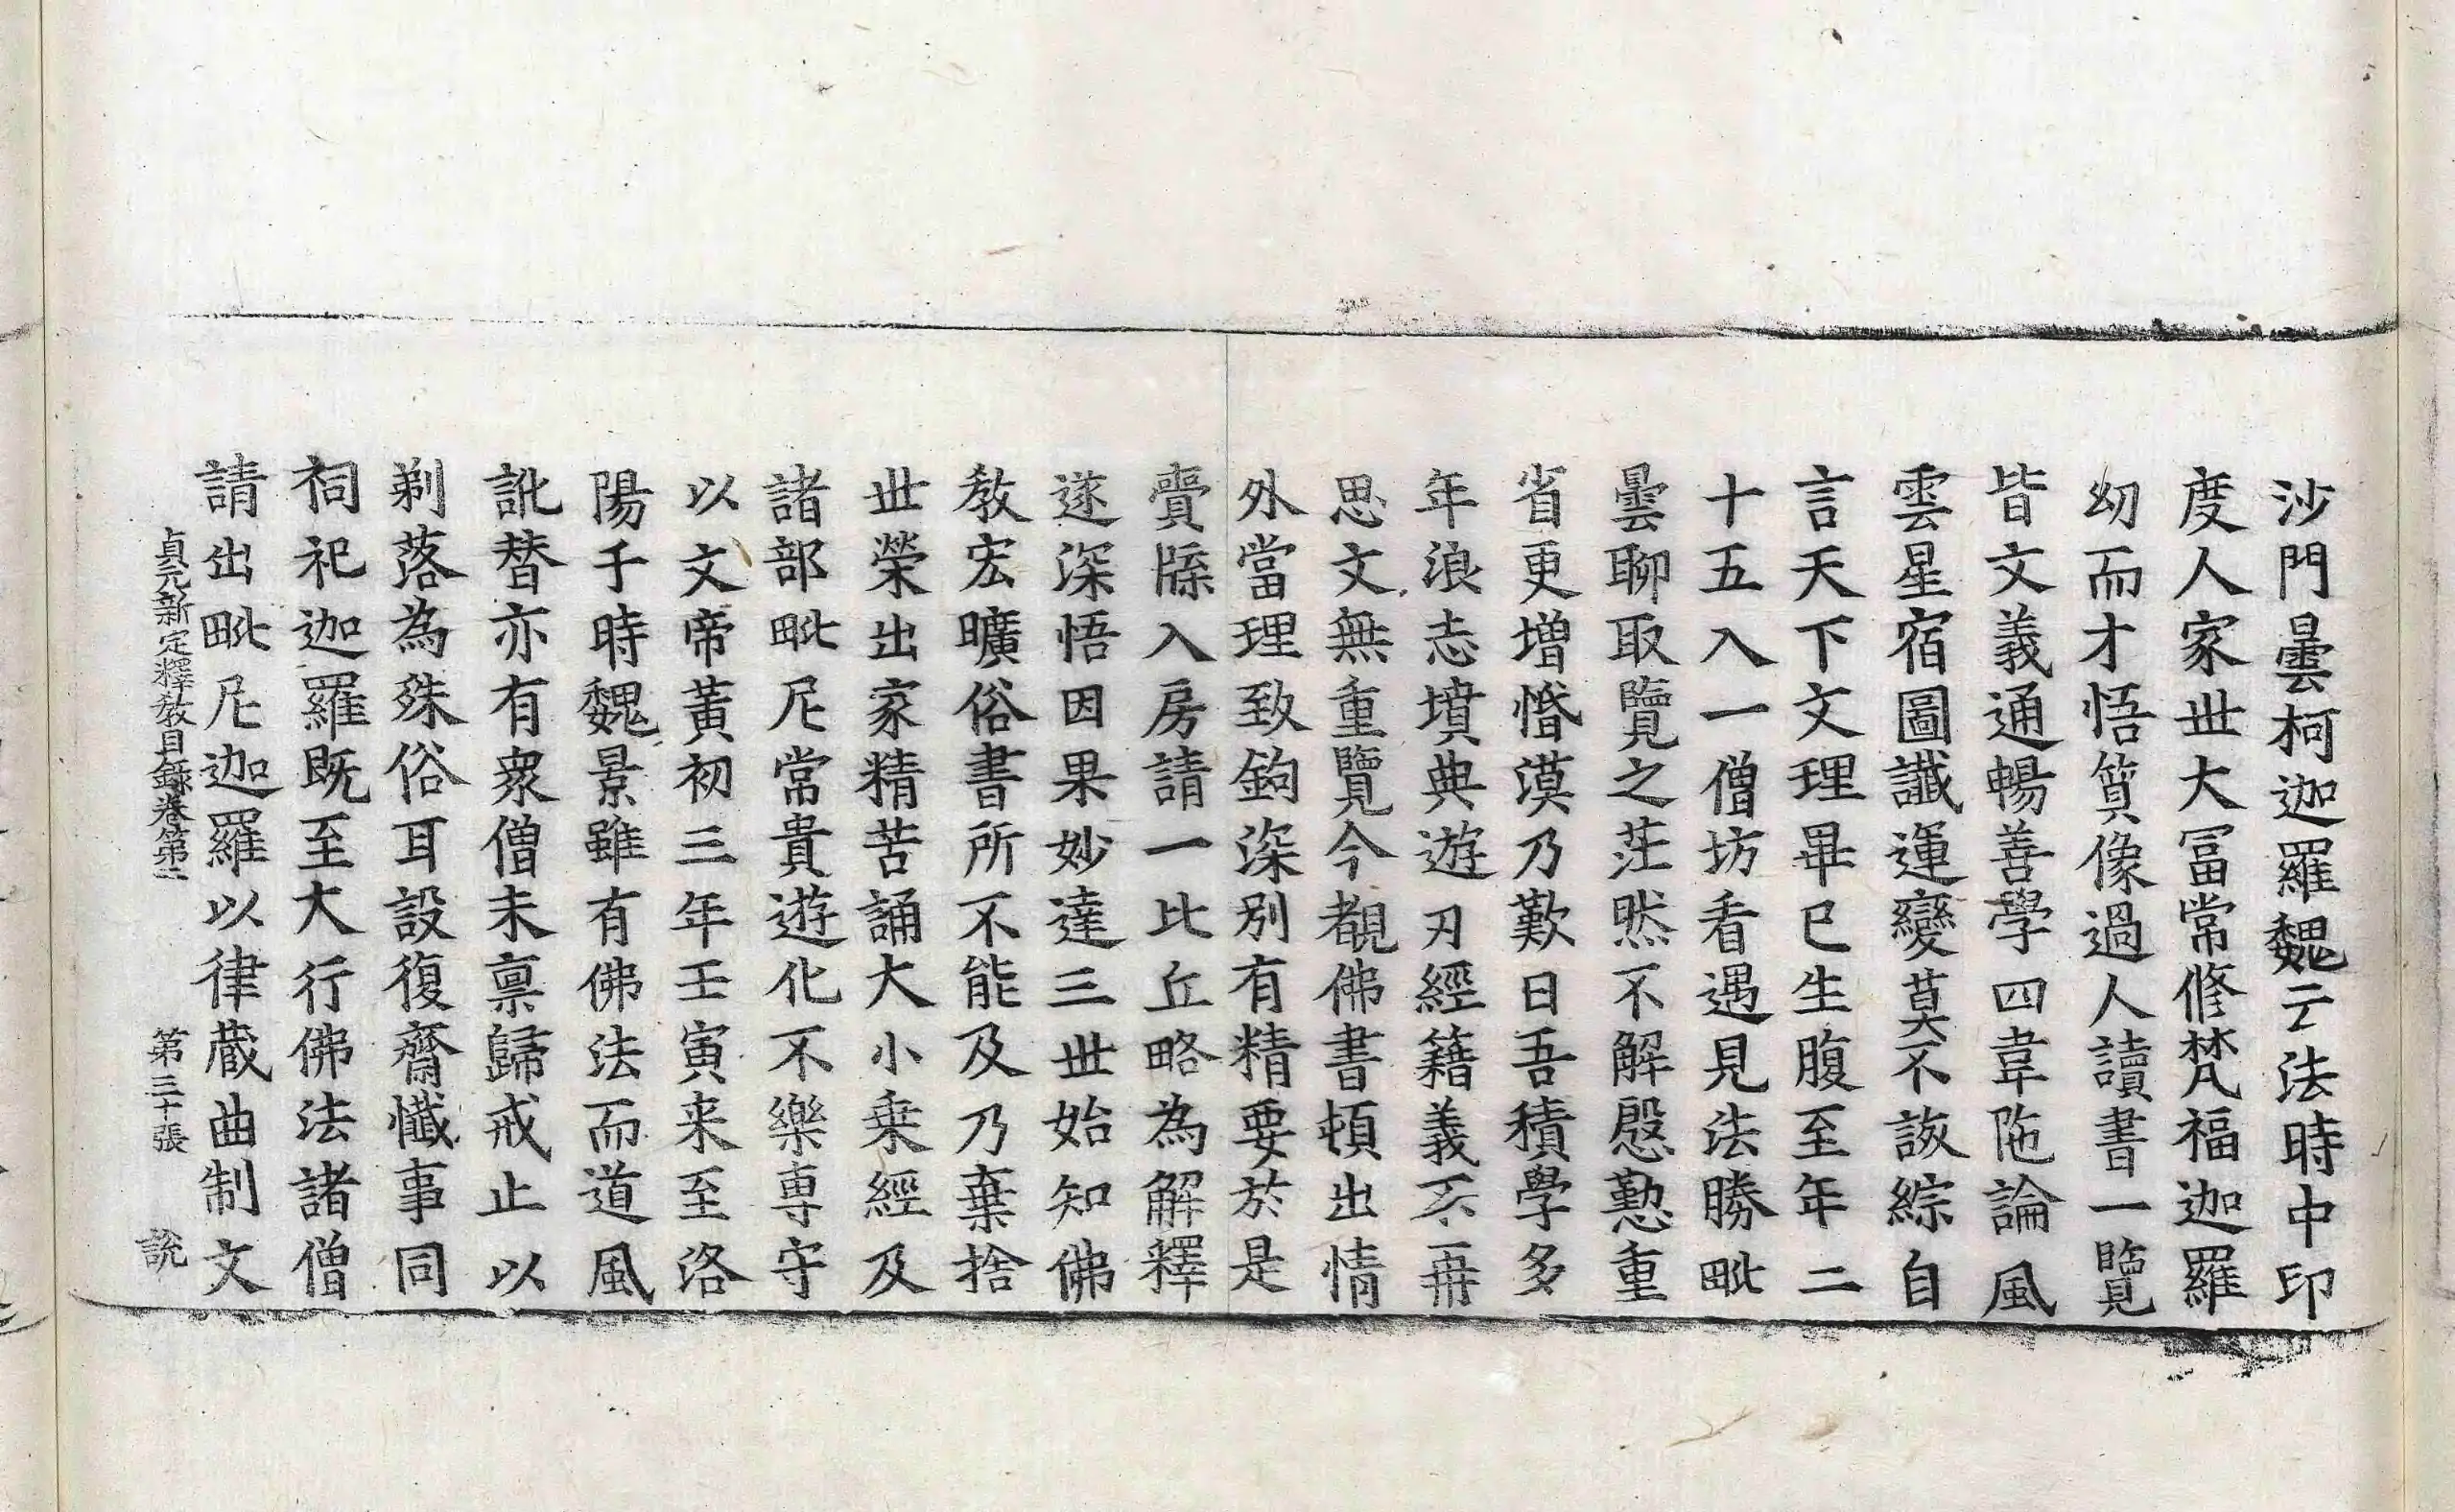 沙門曇柯迦羅魏云法時中印
度人家世大冨常修梵福迦羅
幼而才悟質像過人讀書一覽
皆文義通暢善學四韋陁論風
雲星宿圖讖運變莫不該綜自
言天下文理畢已生腹至年二
十五入一僧坊看遇見法勝毗
曇聊取覽之茫然不解慇懃重
省更增惛漠乃歎曰吾積學多
年浪志墳典遊刃經籍義不再
思文無重覽今覩佛書頓出情
外當理致鉤深别有精要於是
賷牒入房請一比丘略為解釋
遂深悟因果妙達三世始知佛
教宏曠俗書所不能及乃棄捨
世榮出家精苦誦大小乗經及
諸部毗尼常貴遊化不樂專守
以文帝黃初三年壬寅来至洛
陽于時魏景雖有佛法而道風
訛替亦有衆僧未稟歸戒止以
剃落為殊俗耳設復齋懺事同
祠祀迦羅既至大行佛法諸僧
請出毗尼迦羅以律蔵曲制文
貞元新定釋教目錄卷第三 第三十張 說